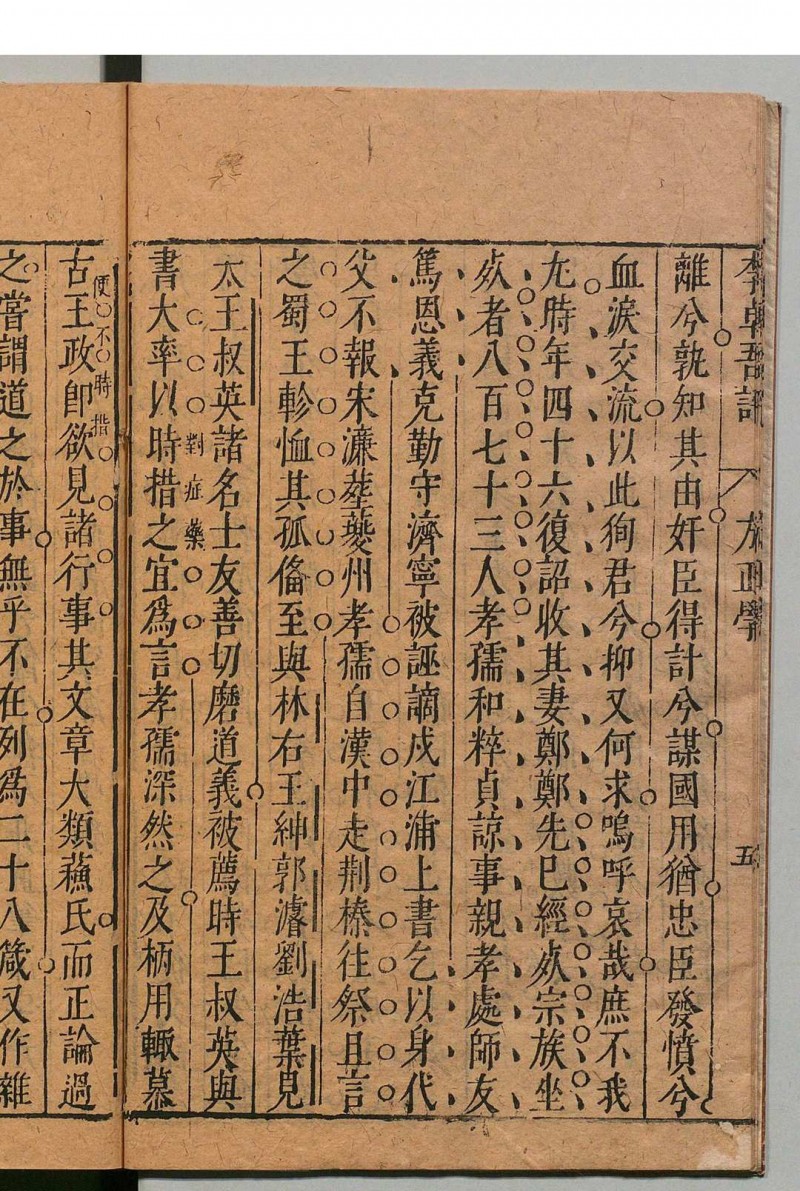 方正學
五
離兮孰知其由奸臣得計兮謀國用猶忠臣發憤兮
血淚交流以此狥君兮抑又何求嗚呼哀哉庶不我
尤時年四十六復詔收其妻鄭鄭先已經㱠宗族坐
㱠者八百七十三人孝孺和粹貞諒事親孝處師友
篤恩義克勤守濟寧被誣謫戍江浦上書乞以身代
父不報宋濂塟夔州孝孺自漢中走荆榛往祭且言
之蜀王軫恤其孤俻至與林右王紳郭濬劉浩葉見
太王叔英諸名士友善切磨道義被薦時王叔英與
書大率以時措之宜爲言孝孺深然之及柄用輙慕
對症藥
古王政卽欲見諸行事其文章大類蘓氏而正論過
便不時措
之嘗謂道之於事無乎不在列爲二十八箴又作雜